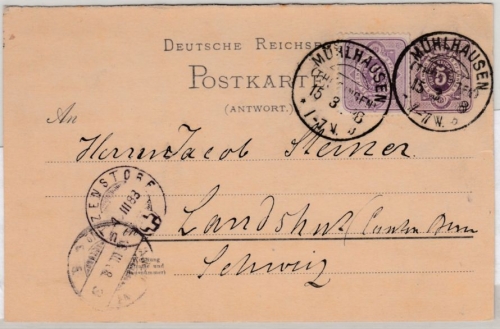 DEUTSCHE REICHSPOST
POSTKARTE
(ANTWORT.)
MÜHLHAUSEN
15 3
1-7 N.
MÜHLHAUSEN
5
15
1-7 N.
An
Herren Jacob Steiner
Landshut (Canton Bern
Schweiz
ZENSTORF
III 93